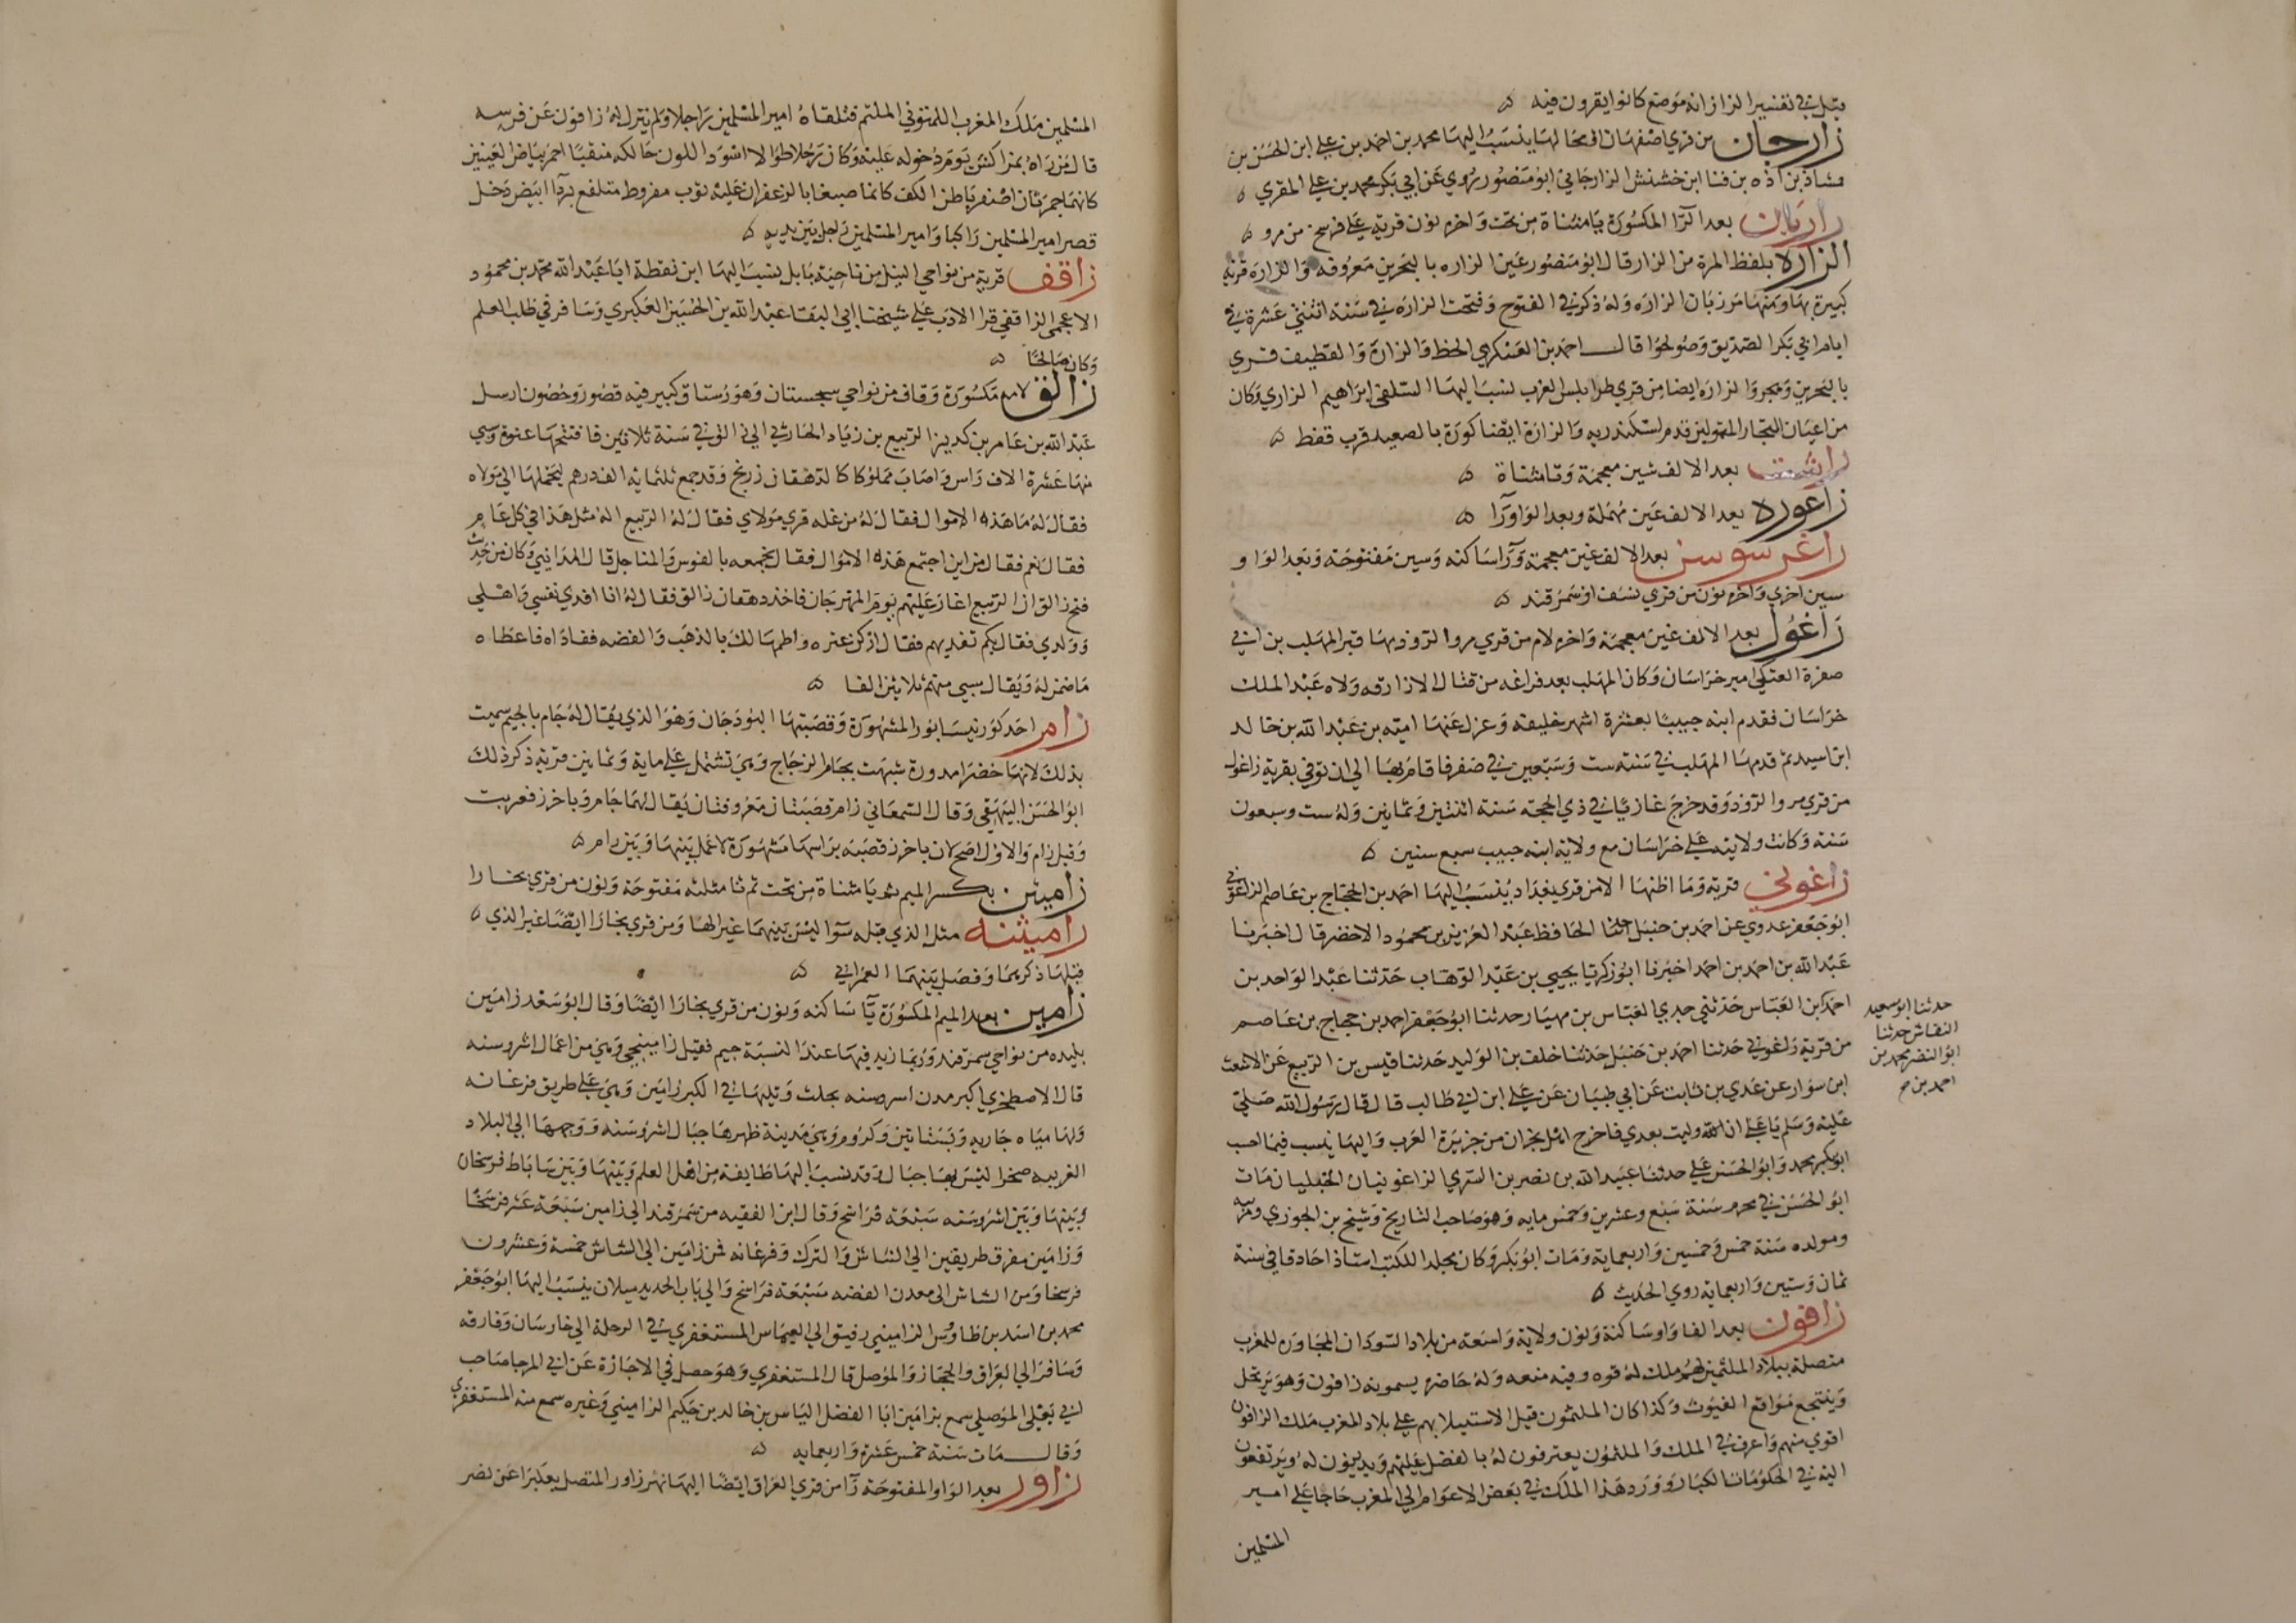 قيل في تفسير الزاز انه موضع كانوا يقرون فيه ه
زارجان من قري اصفهان او محالها ينسب اليها محمد بن احمد بن علي ابن الحسن بن
بن فنا ابن خشنش الزارجاني ابو منصور روي عن ابي بكر محمد بن علي المقري ه
زاريان بعد الرآ المكسورة يا مثناة من تحت واخره نون قرية علي فرسخ من مرو ه
الزارة بلفظ المرة من الزار قال ابو منصور عين الزاره بالبحرين معروفه والزاره قرية
كبيرة بها ومنها مرزبان الزاره وله ذكر في الفتوح وفتحت الزاره في سنة اثنتي عشرة في
ايام ابي بكر الصديق وصولحوا قال احمد بن العسكري الخط والزارة والقطيف قري
بالبحرين وهجر والزاره ايضا من قري طرابلس الغرب نسب اليها السلفي ابراهيم الزاري وكان
من اعيان التجار المتمولين قدم اسكندريه والزارة ايضا كورة بالصعيد قرب قفط ه
زاشت بعد الالف شين معجمة وتا مثناة ه
زاعورة بعد الالف عين مهملة وبعد الواو رآ ه
زاغرسوسن بعد الالف غين معجمة ورآ ساكنه وسين مفتوحة وبعد الواو
سين اخري واخره نون من قري نسف او سمرقند ه
زاغول بعد الالف غين معجمة واخره لام من قري مرو الروذ بها قبر المهلب بن ابي
صفرة العتكي امير خراسان وكان المهلب بعد فراغه من قتال الازارقه ولاه عبد الملك
خراسان فقدم ابنه حبيبا بعشرة اشهر خليفه وعزل عنها امية بن عبد الله بن خالد
ابن اسيد ثم قدمها المهلب في سنة ست وسبعين في صفر فاقام بها الي ان توفي بقرية زاغول
من قري مرو الروذ وقد خرج غازيا في ذي الحجة سنة اثنتين وثمانين وله ست وسبعون
سنة وكانت ولايته علي خراسان مع ولاية ابنه حبيب سبع سنين ه
زاغوني قرية وما اظنها الا من قري بغداد ينسب اليها احمد بن الحجاج بن عاصم الزاغوني
ابو جعفر عدوي عن احمد بن حنبل حدثنا الحافظ عبد العزيز بن محمود الاخضر قال اخبرنا
عبد الله بن احمد بن احمد اخبرنا ابو زكريا يحيي بن عبد الوهاب حدثنا عبد الواحد بن
احمد ابن العباس حدثني جدي العباس بن مهيار حدثنا ابو جعفر احمد بن حجاج بن عاصم
من قرية زاغوني حدثنا احمد بن حنبل حدثنا خلف بن الوليد حدثنا قيس بن الربيع عن الاشعث
ابن سوار عن عدي بن ثابت عن ابي ظبيان عن علي ابن ابي طالب قال قال رسول الله صلي
عليه وسلم يا علي ان الله وليت بعدي فاخرج اهل نجران من جزيرة العرب واليها ينسب فيما احسب
ابو بكر محمد وابو الحسن علي حدثنا عبيد الله بن نصر بن السري الزاغونيان الحنبليان مات
ابو الحسن في محرم سنة سبع وعشرين وخمس مايه وهو صاحب التاريخ وشيخ بن الجوزي ومربيه
ومولده سنة خمس وخمسين واربعماية ومات ابو بكر وكان مجلدا للكتب استاذا حاذقا في سنة
ثمان وستين واربعمايه روي الحديث ه
زافون بعد الفا واو ساكنة ونون ولاية واسعة من بلاد السودان المجاورة للمغرب
متصلة ببلاد الملثمين لهم ملك له قوه وفيه منعه وله حاضره يسمونه زافون وهو يرتحل
وينتجع مواقع الغيوث وكذا كان الملثمون قبل الاستيلا بهم علي بلاد المغرب ملك الزافون
اقوي منهم واعرف في الملك والملثمون يعترفون له بالفضل عليهم ويدينون له ويرتفعون
اليه في الحكومات الكبار وورد هذا الملك في بعض الاعوام الي المغرب حاجا علي امير
المسلمين
حدثنا ابو سعيد
النقاش حدثنا
ابو النضر محمد بن
احمد بن
المسلمين ملك المغرب اللمتوني الملثم فتلقاه امير المسلمين راجلا ولم ينزل له زافون عن فرسه
قال من راه بمراكش يوم دخوله عليه وكان رجلا طوالا اسود اللون حالكه منقبا احمر بياض العينين
كانهما جمرتان اصفر باطن الكف كانما صبغا بالزعفران عليه ثوب مفروط متلفع بردا ابيض دخل
قصر امير المسلمين راكبا وامير المسلمين راجل بين يديه ه
زاقف قرية من نواحي النيل من ناحية بابل ينسب اليها ابن نقطة ابا عبد الله محمد بن محمود
الاعجمي الزاقفي قرا الادب علي شيخنا ابي البقا عبد الله بن الحسين العكبري وسافر في طلب العلم
وكان صالحا ه
زالق لامه مكسورة وقاف من نواحي سجستان وهو رستاق كبير فيه قصور وحصون ارسل
عبد الله بن عامر بن كريز الربيع بن زياد الحارثي الي زالق في سنة ثلاثين فافتتحها عنوة وسبي
منها عشرة الاف راس واصاب مملوكا كا لدهقان زرنج وقد جمع ثلثمايه الف درهم ليحملها الي مولاه
فقال له ما هذه الاموال فقال له من غله قري مولاي فقال له الربيع اله مثل هذا في كل عام
فقال نعم فقال من اين اجتمع هذه الاموال فقال يجمعه بالفوس والمناجل قال المدايني وكان من حديث
فتح زالق ان الربيع اغار عليهم يوم المهرجان فاخذ دهقان زالق فقال له انا افدي نفسي واهلي
وولدي فقال بكم تفديهم فقال اركز عنزه واطمها لك بالذهب والفضه ففاداه فاعطاه
ما ضمن له ويقال سبي منهم ثلاثين الفا ه
زام احد كور نيسابور المشهورة وقصبتها البوزجان وهو الذي يقال له جام بالجيم سميت
بذلك لانها خضرا مدورة شبهت بجام الزجاج وهي تشتمل علي ماية وثمانين قرية ذكر ذلك
ابو الحسن البيهقي وقال السمعاني زام قصبتان معروفتان يقال لهما جام وباخرز فعربت
وقيل زام والاول اصح لان باخرز قصبة براسها مشهورة لا عمل بينها وبين زام ه
زاميثن بكسر الميم ثم يا مثناة من تحت ثم ثا مثلثه مفتوحة ونون من قري بخارا
زاميثنه مثل الذي قبله سوا ليس بينهما غير الها ومن قري بخارا ايضا غير الذي ه
قبلها ذكرهما وفصل بينهما العمراني ه
زامين بعد الميم المكسورة يآ ساكنه ونون من قري بخارا ايضا وقال ابو سعد زامين
بليده من نواحي سمرقند وربما زيد فيها عند النسبة جيم فقيل زامينجي وهي من اعمال اشروسنه
قال الاصطخري اكبر مدن اسروسنه بجلث وتليها في الكبر زامين وهي علي طريق فرغانه
ولها مياه جاريه وبساتين وكروم وهي مدينة ظهرها جبال اشروسنه ووجهها الي البلاد
الغربيه صحرا ليس بها جبال وقد نسب اليها طايفه من اهل العلم وبينها وبين ساباط فرسخان
وبينها وبين اشروسنه سبعة فراسخ وقال ابن الفقيه من سمرقند الي زامين سبعة عشر فرسخا
وزامين مفرق طريقين الي الشاش والترك وفرغانه فمن زامين الي الشاش خمسة وعشرون
فرسخا ومن الشاش الي معدن الفضه سبعة فراسخ والي باب الحديد ميلان ينسب اليها ابو جعفر
محمد بن اسد بن طاوس الزاميني رفيق ابي العباس المستغفري في الرحلة الي خارسان وفارقه
وسافر الي العراق والحجاز والموصل قال المستغفري وهو حصل في الاجازة عن ابي المرجا صاحب
ابي يعلي الموصلي سمع بزامين ابا الفضل الياس بن خالد بن حكيم الزاميني وغيره سمع منه المستغفري
وقال مات سنة خمس عشرة واربعمايه ه
زاور بعد الواو المفتوحة رآ من قري العراق ايضا اليها نهر زاور المتصل بعكبرا عن نصر